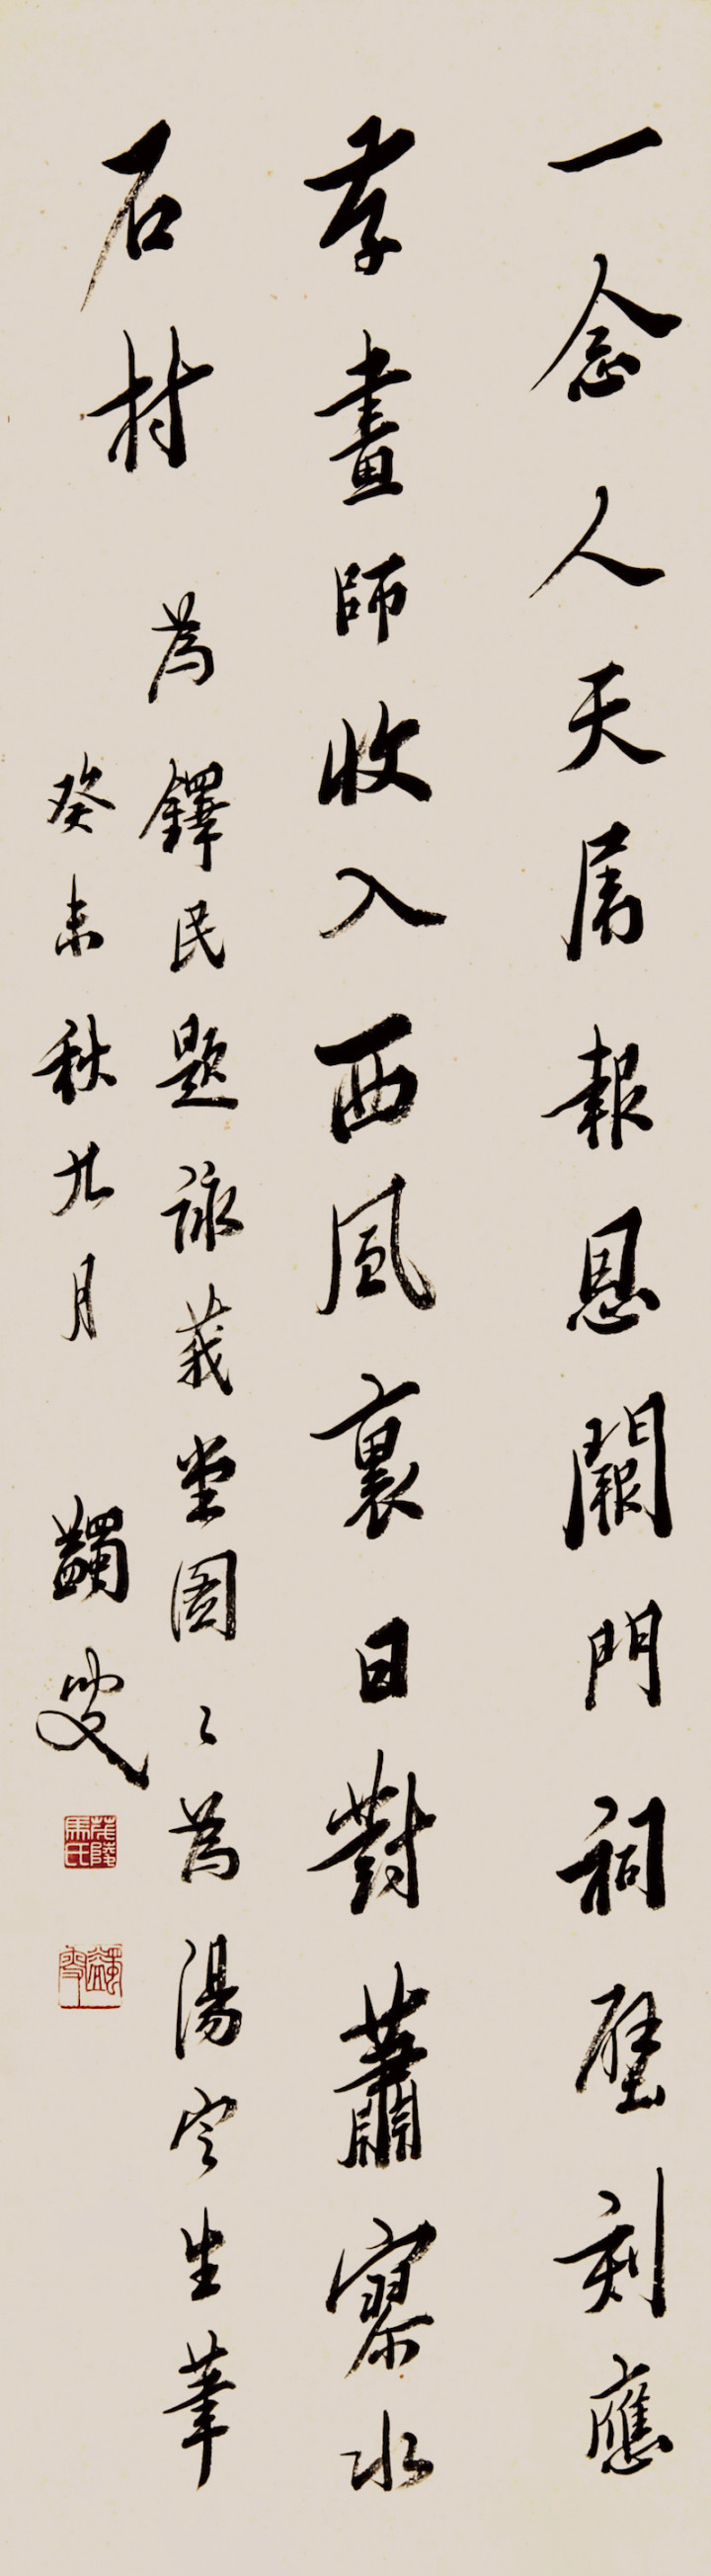 一念人天屬報恩闕門祠壁刻應
存畫師收入西風裏日對蕭寥水
石村
為鐸民題詠莪堂圖〻為湯定生筆
癸未秋九月 蠲叟
茂陵馬氏
蠲叟